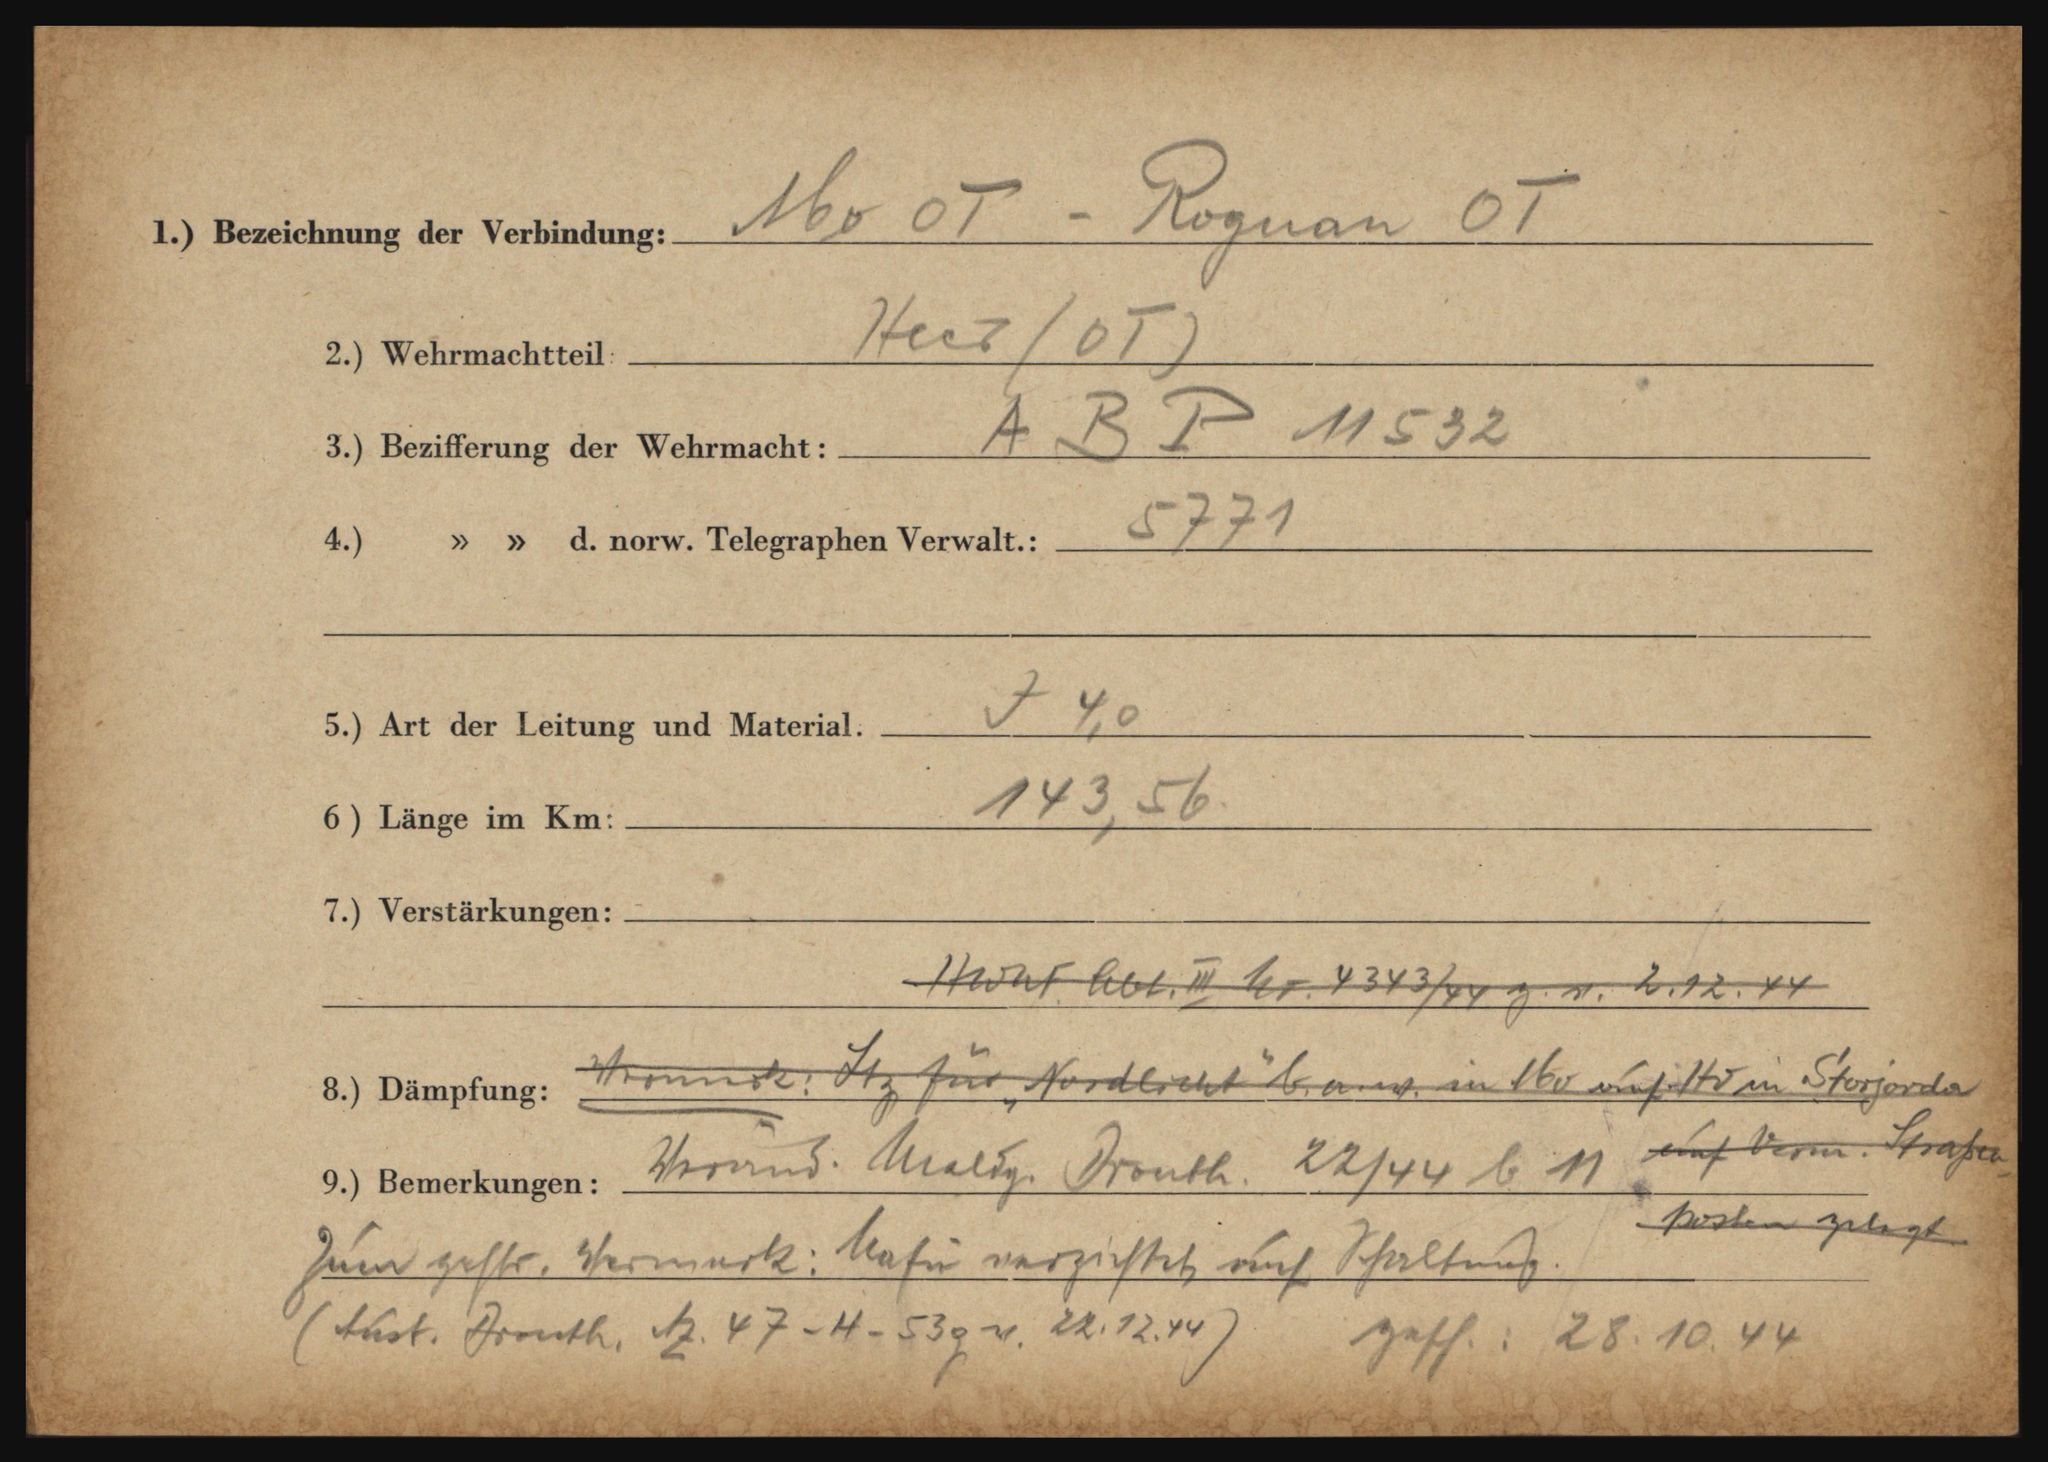 1.) Bezeichnung der Verbindung: Mo OT - Rognan OT
2.) Wehrmachtteil: Heer (OT)
3.) Bezifferung der Wehrmacht: A B P 11532
4.) » » d. norw. Telegraphen Verwalt.: 5771
5.) Art der Leitung und Material. J 4,0
6) Länge im Km: 143,56
7.) Verstärkungen:
III Nr. 4343/44 g. v. 2.12.44
8.) Dämpfung: für „Nordlicht" b. a. w. in Mo auf in Storjorda
auf Verm. Straßen-
9.) Bemerkungen: Veränd. Meldg. Dronth. 22/44 b 11
posten gelegt
Zum gestr. Vermerk: Nafü verzichtet auf Schaltung.
(Aust. Dronth. Az. 47-H-53g v. 22.12.44) gesch.: 28.10.44